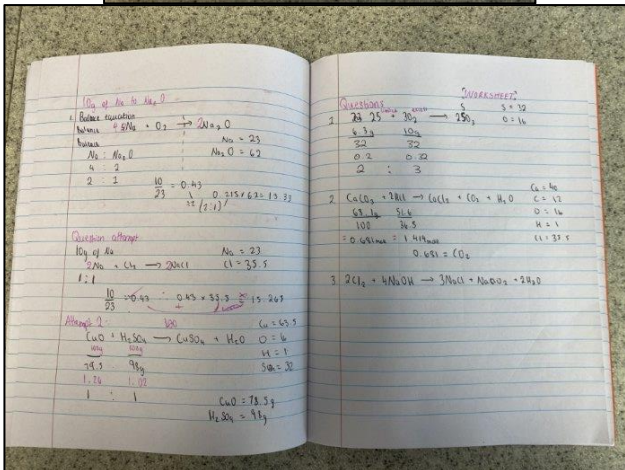 10g of Na to Na₂O
Balance equation
Balance 4 Na + O₂ → 2Na₂O
Na : Na₂O
Na = 23
4 : 2
Na₂O = 62
2 : 1
10/23 = 0.43
0.215 × 62 = 13.33
(2:1)
Question attempt
10g of Na
Na = 23
2Na + Cl₂ → 2NaCl
Cl = 35.5
1:1
10/23 = 0.43 : 0.43 ×
15.265
Attempt 2:
CuO + H₂SO₄ → CuSO₄ + H₂O
Cu = 63.5
O = 16
100g 100g
H = 1
79.5 98g
1.26 1.02
1 : 1
CuO = 79.5g
H₂SO₄ = 98g
"WORKSHEET"
Questions
S = 32
1 2S + 3O₂ → 2SO₃
O = 16
6.3g 10g
32 32
0.2 0.32
2 : 3
2 CaCO₃ + 2HCl → CaCl₂ + CO₂ + H₂O
Ca = 40
C = 12
O = 16
H = 1
Cl = 35.5
100 36.5
= 0.681 mol = 1.419 mol
0.681 = CO₂
3 2Cl₂ + 4NaOH → 3NaCl + + 2H₂O